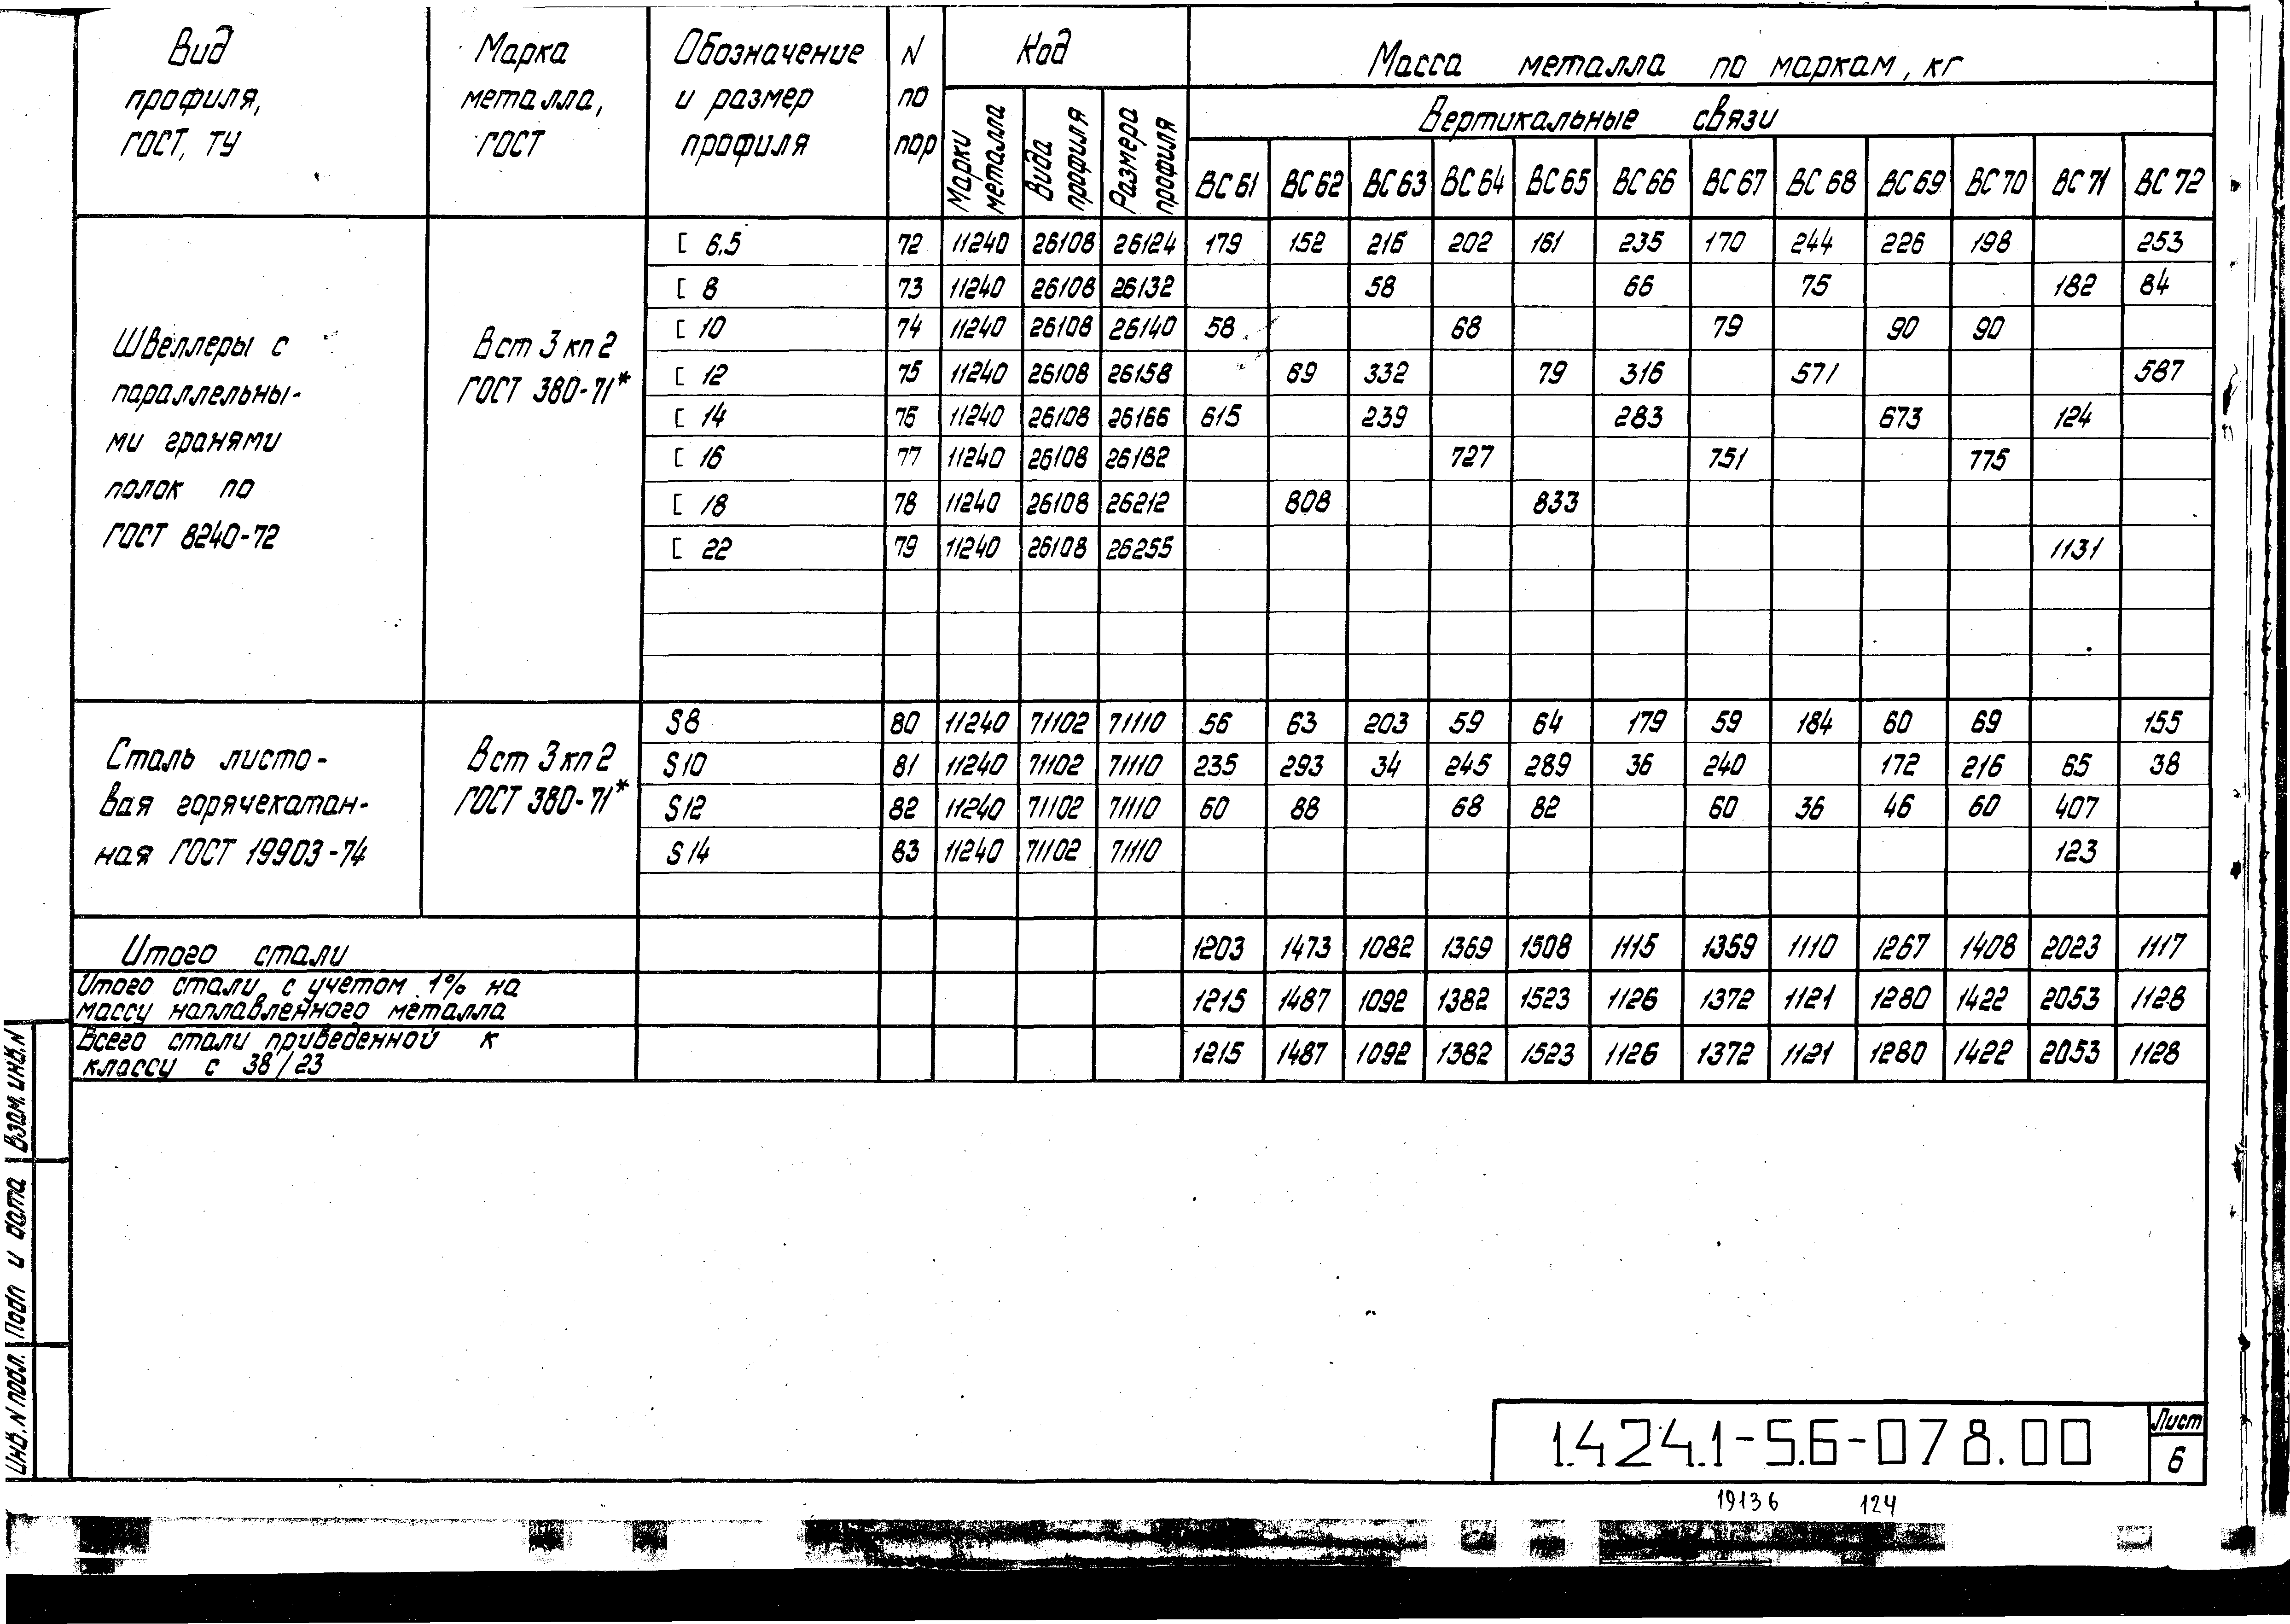 Вид профиля, ГОСТ, ТУ | Марка металла, ГОСТ | Обозначение и размер профиля | N по пор | Код | Масса металла по маркам, кг
Марки металла | Вида профиля | Размера профиля | Вертикальные связи
ВС 61 | ВС 62 | ВС 63 | ВС 64 | ВС 65 | ВС 66 | ВС 67 | ВС 68 | ВС 69 | ВС 70 | ВС 71 | ВС 72
Швеллеры с
параллельны-
ми гранями
полок по
ГОСТ 8240-72
Вст 3 кп 2
ГОСТ 380-71*
[ 6.5 | 72 | 11240 | 26108 | 26124 | 179 | 152 | 216 | 202 | 161 | 235 | 170 | 244 | 226 | 198 | | 253
[ 8 | 73 | 11240 | 26108 | 26132 | | | 58 | | | 66 | | 75 | | | 182 | 84
[ 10 | 74 | 11240 | 26108 | 26140 | 58 | | | 68 | | | 79 | | 90 | 90 | |
[ 12 | 75 | 11240 | 26108 | 26158 | | 69 | 332 | | 79 | 316 | | 571 | | | | 587
[ 14 | 76 | 11240 | 26108 | 26166 | 615 | | 239 | | | 283 | | | 673 | | 124 |
[ 16 | 77 | 11240 | 26108 | 26182 | | | | 727 | | | 751 | | | 775 | |
[ 18 | 78 | 11240 | 26108 | 26212 | | 808 | | | 833 | | | | | | |
[ 22 | 79 | 11240 | 26108 | 26255 | | | | | | | | | | | 1131 |
Сталь листо-
вая горячекатан-
ная ГОСТ 19903-74
Вст 3 кп 2
ГОСТ 380-71*
S8 | 80 | 11240 | 71102 | 71110 | 56 | 63 | 203 | 59 | 64 | 179 | 59 | 184 | 60 | 69 | | 155
S10 | 81 | 11240 | 71102 | 71110 | 235 | 293 | 34 | 245 | 289 | 36 | 240 | | 172 | 216 | 65 | 38
S12 | 82 | 11240 | 71102 | 71110 | 60 | 88 | | 68 | 82 | | 60 | 36 | 46 | 60 | 407 |
S14 | 83 | 11240 | 71102 | 71110 | | | | | | | | | | | 123 |
Итого стали | 1203 | 1473 | 1082 | 1369 | 1508 | 1115 | 1359 | 1110 | 1267 | 1408 | 2023 | 1117
Итого стали с учетом 1% на
массу наплавленного металла | 1215 | 1487 | 1092 | 1382 | 1523 | 1126 | 1372 | 1121 | 1280 | 1422 | 2053 | 1128
Всего стали приведенной к
классу с 38/23 | 1215 | 1487 | 1092 | 1382 | 1523 | 1126 | 1372 | 1121 | 1280 | 1422 | 2053 | 1128
Взам. инв. N
Подп и дата
Инв. N подл.
1.424.1-5.6-078.00
Лист
6
19136 124